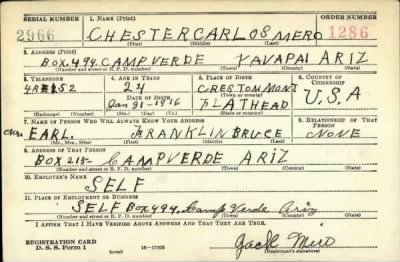 SERIAL NUMBER 1. NAME (Print) ORDER NUMBER
2966 CHESTER CARLOS MERO 1286
(First) (Middle) (Last)
2. ADDRESS (Print)
BOX.494. CAMP VERDE YAVAPAI ARIZ
(Number and street or R. F. D. number) (Town) (County) (State)
3. TELEPHONE 4. AGE IN YEARS 5. PLACE OF BIRTH 6. COUNTRY OF CITIZENSHIP
24 CRESTON MONT
DATE OF BIRTH
Jan 31-1916 FLATHEAD U.S.A
(Exchange) (Number) (Mo.) (Day) (Yr.) (State or country)
7. NAME OF PERSON WHO WILL ALWAYS KNOW YOUR ADDRESS 8. RELATIONSHIP OF THAT PERSON
EARL. FRANKLIN BRUCE NONE
(Mr., Mrs., Miss) (First) (Middle) (Last)
9. ADDRESS OF THAT PERSON
BOX 218- CAMPVERDE ARIZ
(Number and street or R. F. D. number) (Town) (County) (State)
10. EMPLOYER'S NAME
SELF
11. PLACE OF EMPLOYMENT OR BUSINESS
SELF Box 494, Camp Verde Ariz
(Number and street or R. F. D. number) (Town) (County) (State)
I AFFIRM THAT I HAVE VERIFIED ABOVE ANSWERS AND THAT THEY ARE TRUE.
REGISTRATION CARD
D. S. S. Form 1 (over) 16-17105 Jack Mero
(Registrant's signature)